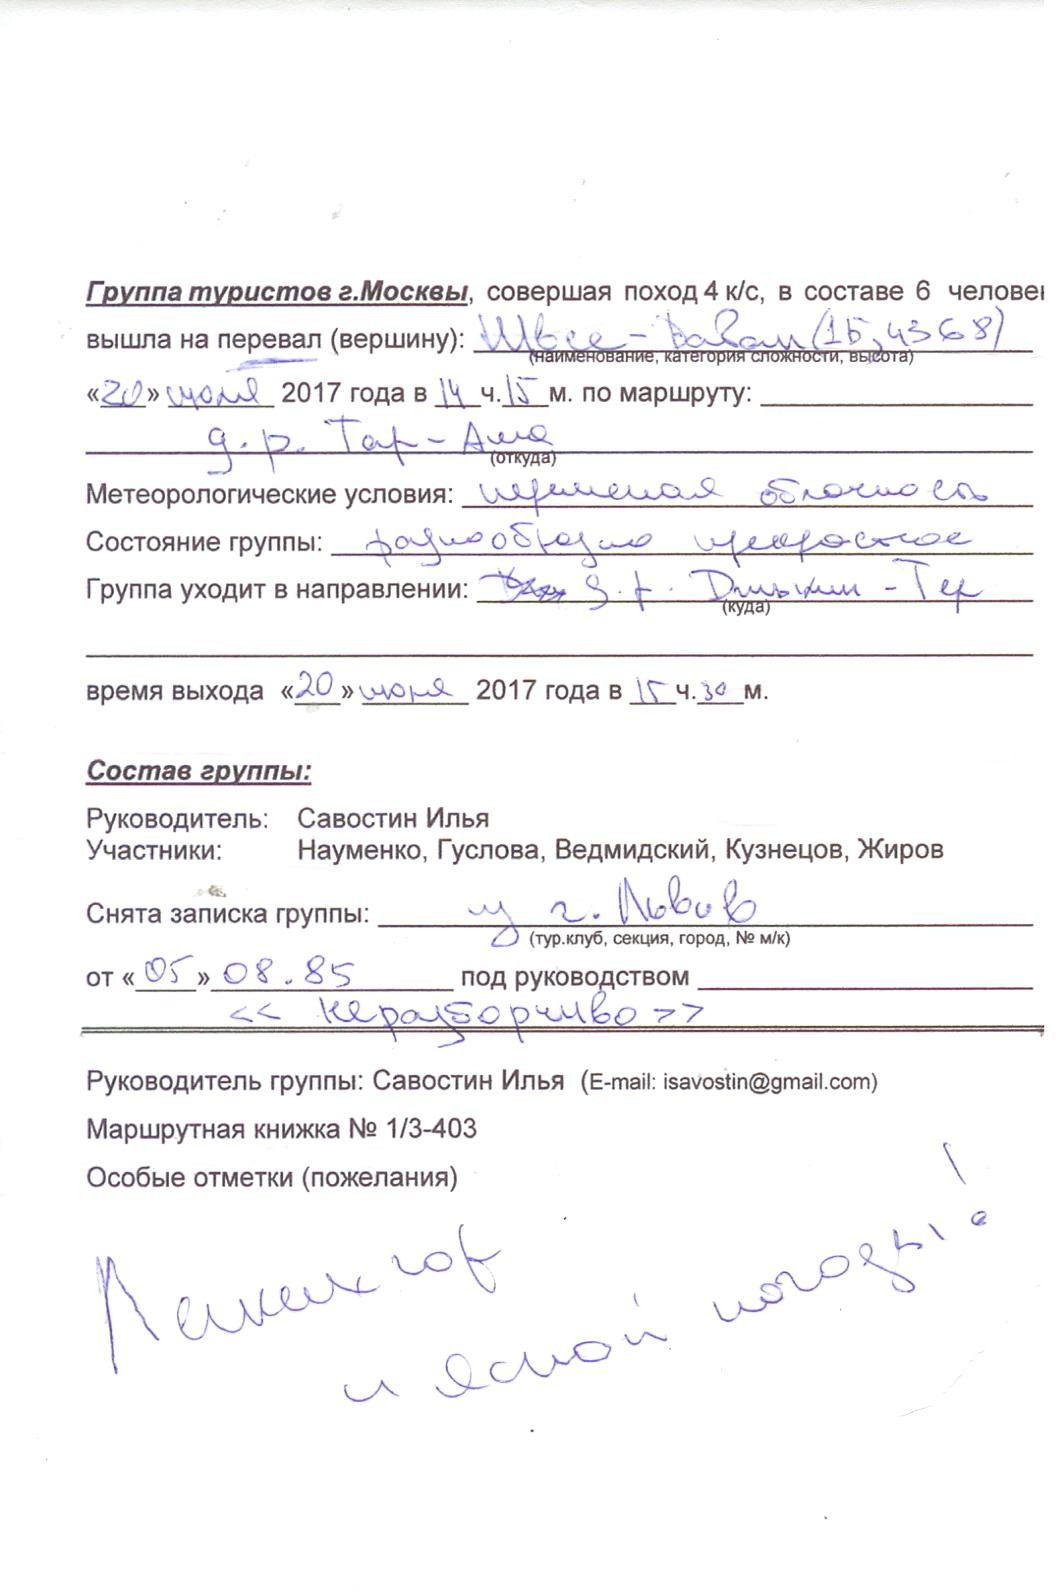 Группа туристов г.Москвы, совершая поход 4 к/с, в составе 6 человек
вышла на перевал (вершину): (1Б, 4368)
(наименование, категория сложности, высота)
«20» июля 2017 года в 14 ч. 15 м. по маршруту:
д.р. Тар-Ама
(откуда)
Метеорологические условия: переменная облачность
Состояние группы: разнообразно прекрасное
Группа уходит в направлении: д.р.
(куда)
время выхода «20» июля 2017 года в 15 ч. 30 м.
Состав группы:
Руководитель: Савостин Илья
Участники: Науменко, Гуслова, Ведмидский, Кузнецов, Жиров
Снята записка группы: из г. Львов
(тур.клуб, секция, город, № м/к)
от «05» 08.85 под руководством
<< неразборчиво >>
Руководитель группы: Савостин Илья (E-mail: isavostin@gmail.com)
Маршрутная книжка № 1/3-403
Особые отметки (пожелания)
гор
и ясной погоды!